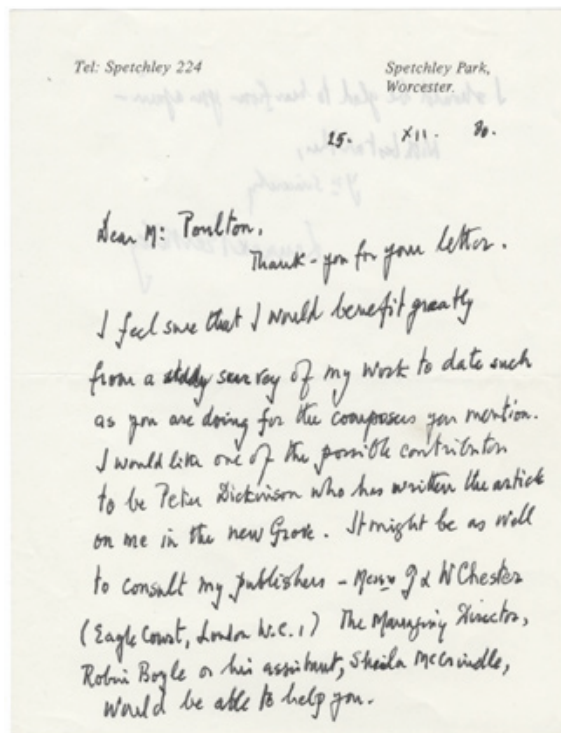 Tel: Spetchley 224
Spetchley Park,
Worcester.
25. XII. 80.
Dear Mr: Poulton,
Thank-you for your letter.
I feel sure that I would benefit greatly
from a survey of my work to date such
as you are doing for the composers you mention.
I would like one of the possible contributors
to be Peter Dickinson who has written the article
on me in the new Grove. It might be as well
to consult my publishers - Messrs J & W Chester
(Eagle Court, London W.C.1) The Managing Director,
Robin Boyle or his assistant, Sheila McCrindle,
would be able to help you.